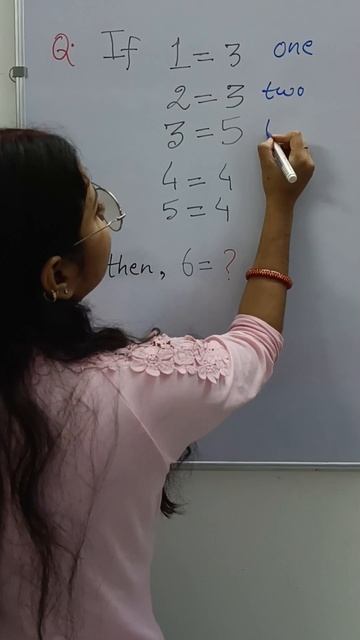 Q. If 1 = 3 one
2 = 3 two
3 = 5
4 = 4
5 = 4
then, 6 = ?